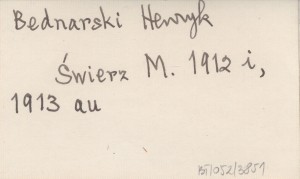 Bednarski Henryk
Świerz M. 1912 i,
1913 au
BT/052/3851